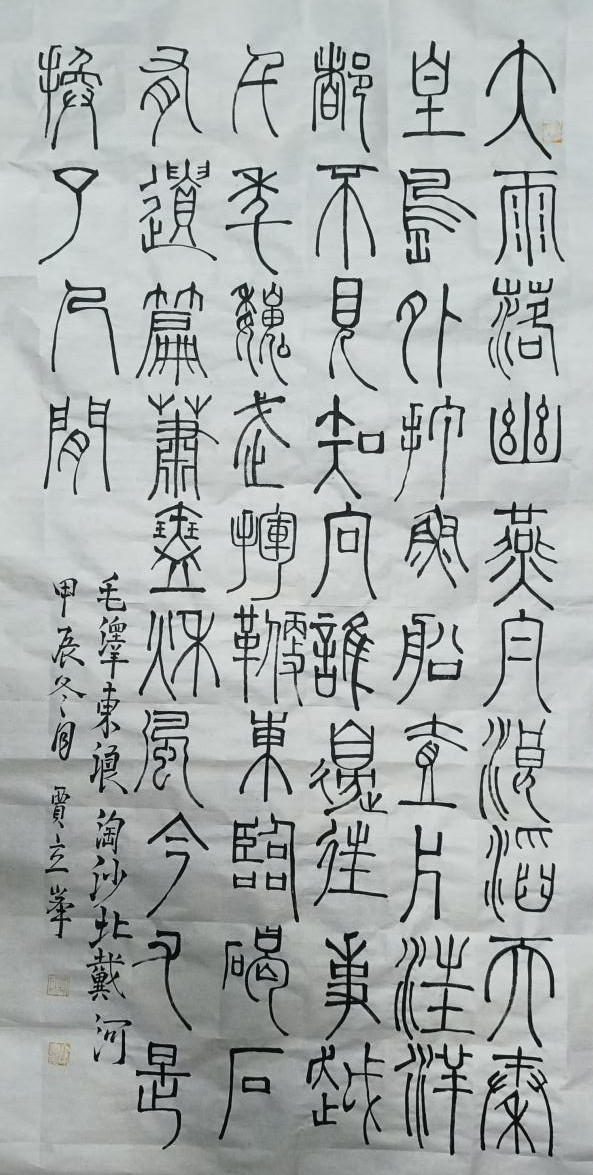 大雨落幽燕白浪滔天秦
皇島外打魚船壹片汪洋
都不見知向誰邊往事越
千年魏武揮鞭東臨碣石
有遺篇蕭瑟秋風今又是
換了人間
毛澤東浪淘沙北戴河
甲辰冬月 賈立峯